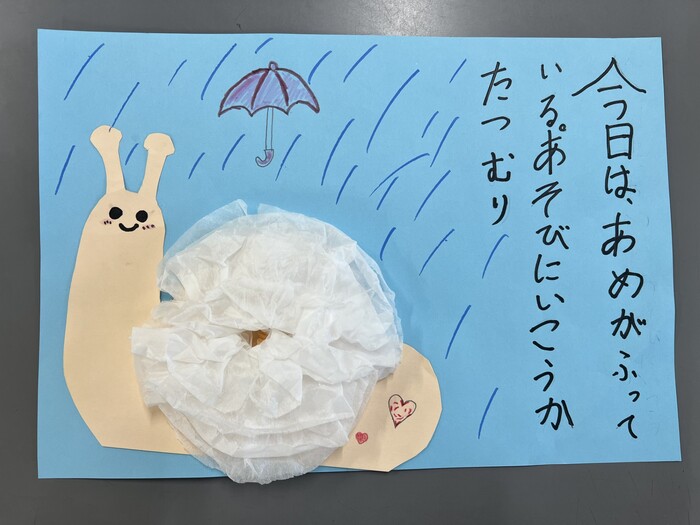 今日は、あめがふって
いる。あそびにいこうか
たつむり